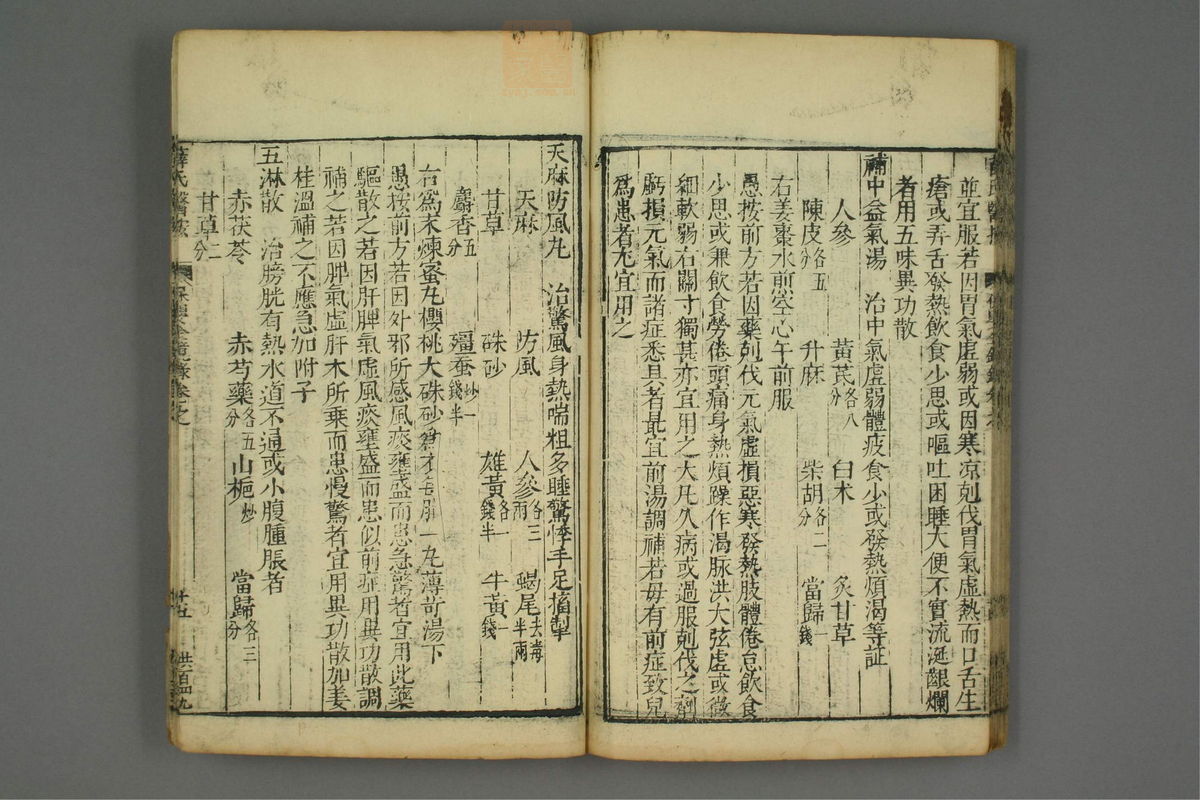 並宜服若因胃氣虛弱或因寒凉剋伐胃氣虛熱而口舌生
瘡或弄舌發熱飲食少思或嘔吐困睡大便不實流涎齦爛
者用五味異功散
補中益氣湯 治中氣虛弱體疲食少或發熱煩渴等証
人參 黃芪各八分 白术 炙甘草
陳皮各五分 升麻 柴胡各二分 當歸一錢
右姜棗水煎空心午前服
愚按前方若因藥剋伐元氣虛損惡寒發熱肢體倦怠飲食
少思或兼飲食勞倦頭痛身熱煩躁作渴脉洪大弦虛或微
細軟弱右關寸獨甚亦宜用之大凡久病或過服剋伐之劑
虧損元氣而諸症悉具者最宜前湯調補若毋有前症致兒
爲患者尤宜用之
天麻防風丸 治驚風身熱喘粗多睡驚悸手足搐掣
天麻 防風 人參各三兩 蝎尾去毒半兩
甘草 硃砂 雄黃各一錢半 牛黃一錢
麝香五分 殭蚕炒一錢半
右爲末煉蜜丸櫻桃大硃砂爲衣每服一丸薄苛湯下
愚按前方若因外邪所感風痰壅盛而患急驚者宜用此藥
驅散之若因肝脾氣虛風痰壅盛而患似前症用異功散調
補之若因脾氣虛肝木所乘而患慢驚者宜用異功散加姜
桂溫補之不應急加附子
五淋散 治膀胱有熱水道不通或小腹腫脹者
赤茯苓 赤芍藥各五分 山梔炒 當歸各三分
甘草二分
薛氏醫 卷之